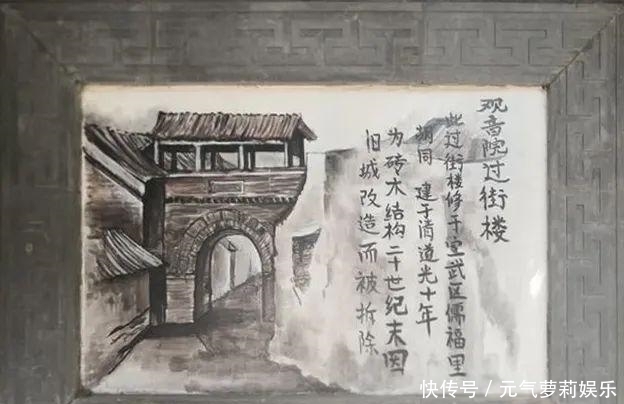 观音院过街楼
此过街楼修于宣武区儒福里
胡同 建于清道光十年
为砖木结构二十世纪末因
旧城改造而被拆除
快传号／元气萝莉娱乐